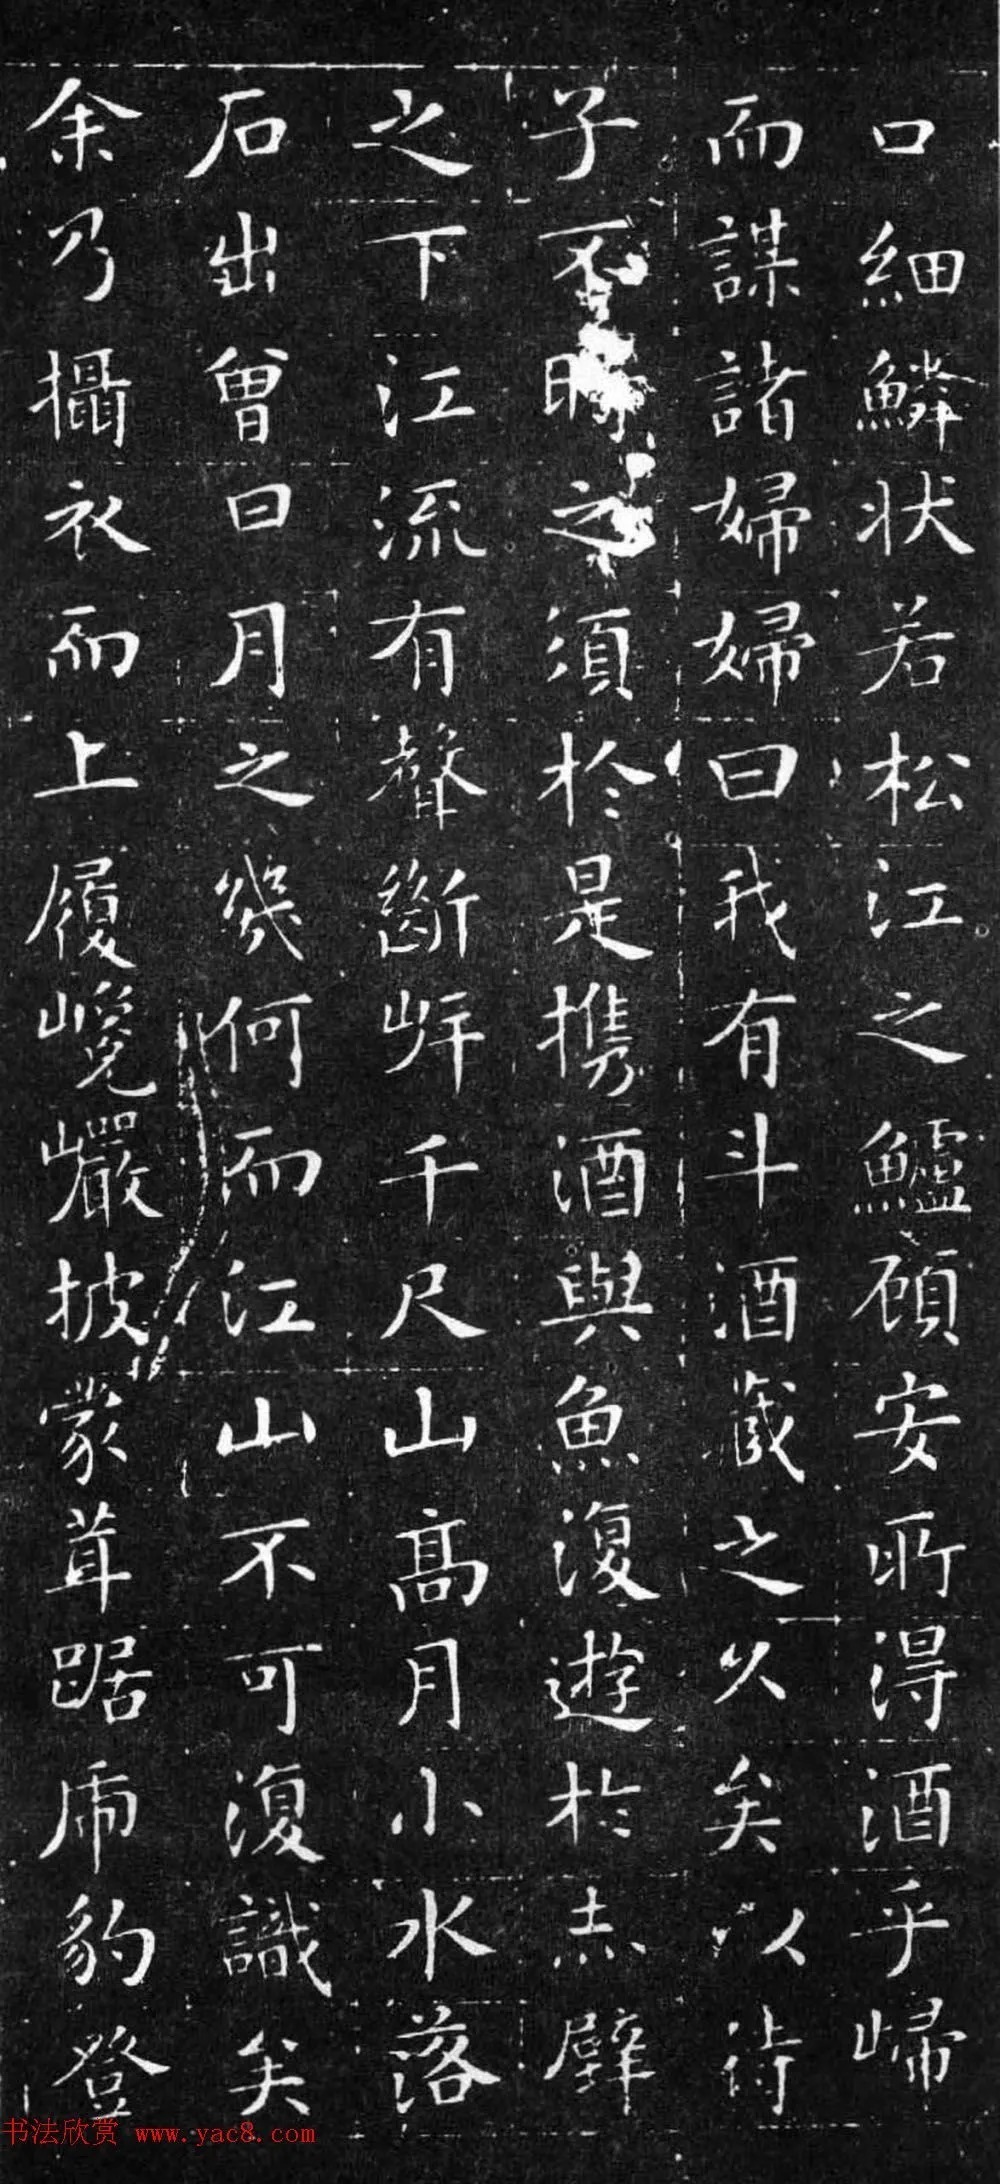 口細鱗狀若松江之鱸顧安所得酒乎歸
而謀諸婦婦曰我有斗酒藏之久矣以待
子不時之須於是攜酒與魚復遊於赤壁
之下江流有聲斷岸千尺山高月小水落
石出曾日月之幾何而江山不可復識矣
余乃攝衣而上履巉巖披蒙茸踞虎豹登
书法欣赏 www.yac8.com